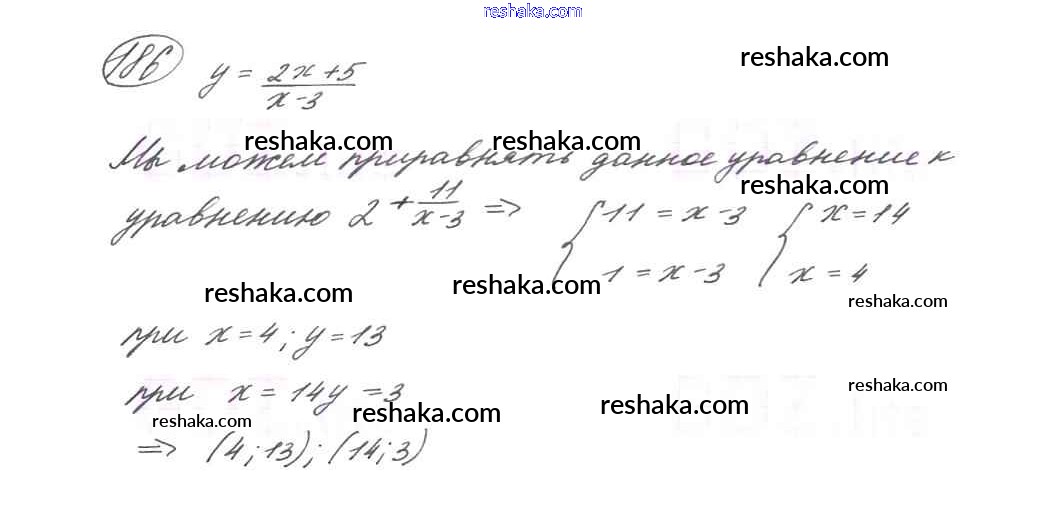 reshaka.com
186 y = (2x+5)/(x-3) reshaka.com
reshaka.com reshaka.com
Мы можем приравнять данное уравнение к
reshaka.com
уравнению 2 + 11/(x-3) => { 11 = x-3 { x = 14
1 = x-3 x = 4
reshaka.com reshaka.com reshaka.com
при x = 4; y = 13
при x = 14 y = 3 reshaka.com
reshaka.com reshaka.com reshaka.com
=> (4; 13); (14; 3)